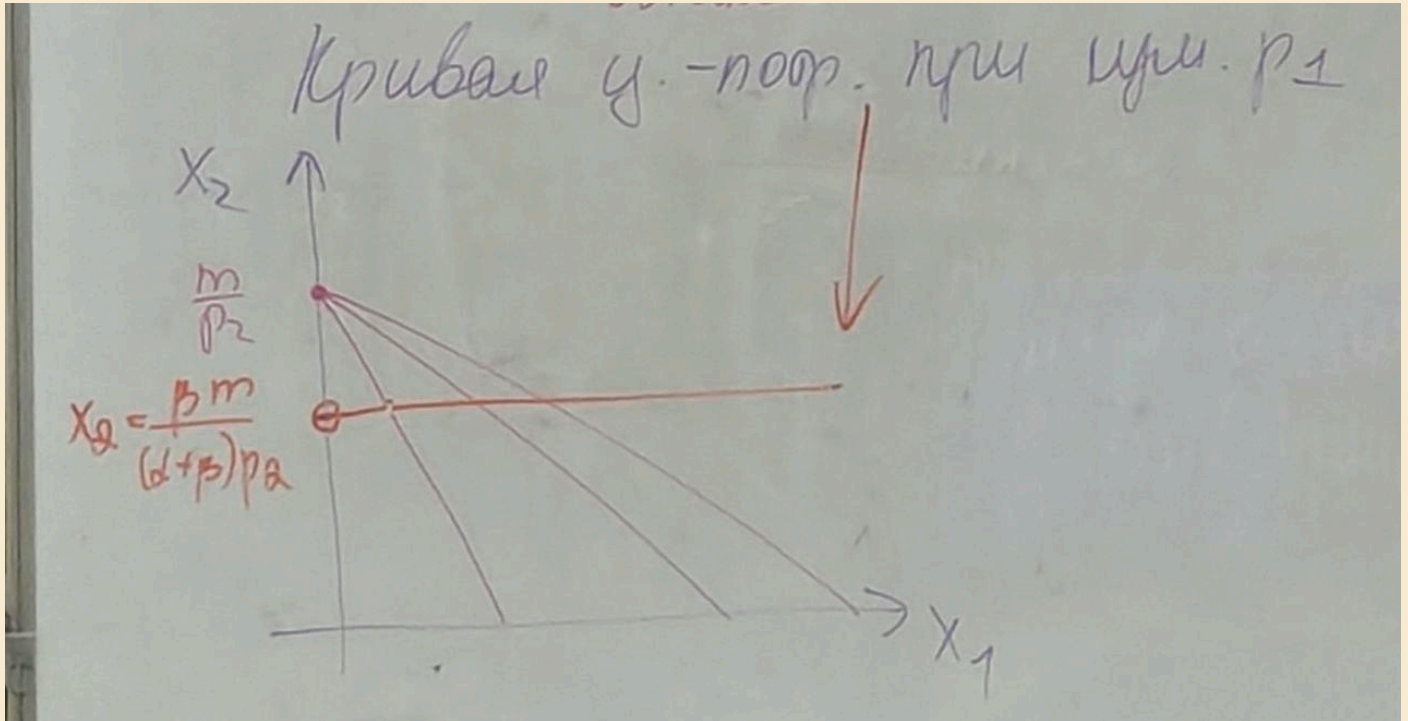 Кривая ц.-потр. при изм. p1
X2
m
p2
X2 = βm
(α+β)p2
X1